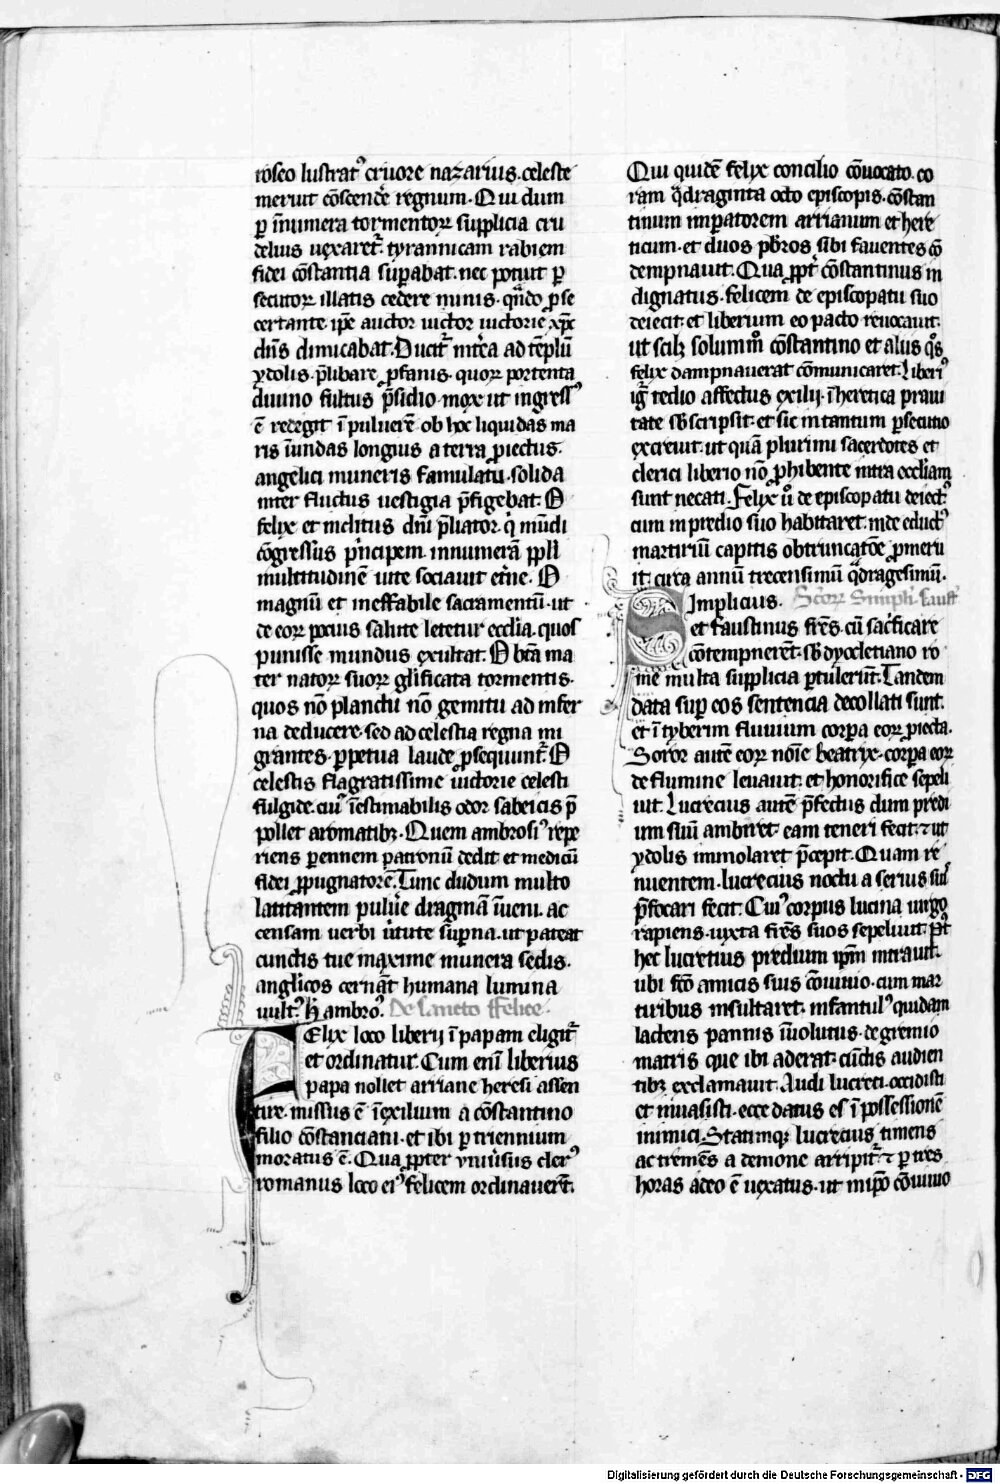 roseo lustratꝰ cruore nazarius. celeste
meruit cōscendē regnum. Qui dum
ꝑ īnumera tormentoꝝ supplicia cru
delius uexaret᷑. tyrannicam rabiem
fidei cōstantia suꝑabat. nec potuit ꝑ
secutoꝝ illatis cedere minis. qn̄do ꝓ se
certante. ip̄e auctor uictor uictorie xp̄c
dn̄s dimicabat. Ducit᷑ int̄ea ad tēplū
ydolis. p̄libare ꝓfanis. quoꝝ portenta
diuino fultus p̄sidio. mox ut ingressꝰ
ē redegit ī puluerē. ob hoc liquidas ma
ris īundas longius a terra ꝓiectus.
angelici muneris famulatu. solida
inter fluctus uestigia p̄figebat. O
felix et inclitus dn̄i p̄liator. q̇ mūdi
cōgressus p̄ncipem. innumerā ppl̄i
multitudinē uite sociauit et̄ne. O
magnū et ineffabile sacramentū. ut
de eoꝝ pocius salute letetur eccl̄ia. quos
punisse mundus exultat. O bt̄a ma
ter natoꝝ suoꝝ gl̄ificata tormentis.
quos nō planctu nō gemitu ad infer
na deducere. sed ad celestia regna mi
grantes. ꝑpetua laude ꝓsequunt᷑. O
celestis flagratissime uictorie celesti
fulgide. cuiꝰ īestimabilis odor sabeicis p̄
pollet aromatibꝫ. Quem ambrosiꝰ repe
riens ꝑennem patronū dedit et medicū
fidei ꝓpugnatorē. Tunc dudum multo
latitantem puluīe dragmā īueni. ac
censam uerbi ūtute suꝑna. ut pateat
cunctis tue maxime munera sedis.
angelicos cernāt humana lumina
uultꝰ. h̄ ambroꝰ. De sancto ffelice.
Felix loco liberij ī papam eligit᷑
et ordinatur. Cum eni᷑ liberius
papa nollet arriane heresi assen
tire. missus ē ī exilium a cōstantino
filio cōstanciani. et ibi ꝑ triennium
moratus ē. Qua ꝓpter vniūsus clerꝰ
romanus loco eiꝰ felicem ordinauerūt.
Qui quidē felix concilio cōuocato. co
ram q̄draginta octo episcopis. cōstan
tinum imꝑatorem arrianum et here
ticum. et duos pb̄ros sibi fauentes cō
dempnauit. Qua ꝓpt᷑ cōstantinus in
dignatus. felicem de episcopatu suo
deiecit. et liberium eo pacto reuocauit.
ut scilꝫ solummō cōstantino et aliis q̊s
felix dampnauerat cōmunicaret. Liberiꝰ
ig᷑ tedio affectus exilij. ī heretica praui
tate sb̄scripsit. et sic in tantum ꝑsecutio
excreuit. ut quā plurimi sacerdotes et
clerici liberio nō ꝓhibente intra eccl̄iam
sunt necati. Felix ū de episcopatu deiectꝰ
cum in predio suo habitaret. inde eductꝰ
martiriū capitis obtruncatōe ꝓmeru
it. circa annū trecensimū q̄dragesimū.
Simplicius. Scōꝝ Simpli. faust
et faustinus fr̄es. cū sac᷑ficare
cōtempnerēt. sb̄ dyocletiano ro
me multa supplicia ꝑtulerūt. Tandem
data suꝑ eos sentencia decollati sunt.
et ī tyberim fluuium corꝑa eoꝝ ꝓiecta.
Soror autē eoꝝ noīe beatrix. corꝑa eoꝝ
de flumine leuauit. et honorifice sepeli
uit. Lucrecius autē p̄fectus dum predi
um suū ambiret. eam teneri fecit. ⁊ ut
ydolis immolaret p̄cepit. Quam re
nuentem. lucrecius noctu a seruis suis
p̄focari fecit. Cuiꝰ corpus lucina uirgo
rapiens. iuxta fr̄es suos sepeliuit. P᷑t
hec lucretius predium ip̄m intrauit.
ubi fc̄o amicis suis cōuiuio. cum mar
tiribus insultaret. infantulꝰ quidam
lactens pannis īuolutus. de gremio
matris que ibi aderat. cūctis audien
tibꝫ exclamauit. Audi lucreti. occidisti
et inuasisti. ecce datus es ī possessionē
inimici. Statimqꝫ lucrecius timens
ac tremēs a demone arripit᷑. ⁊ ꝑ tres
horas adeo ē uexatus. ut in ip̄o cōuiuio
Digitalisierung gefördert durch die Deutsche Forschungsgemeinschaft - DFG